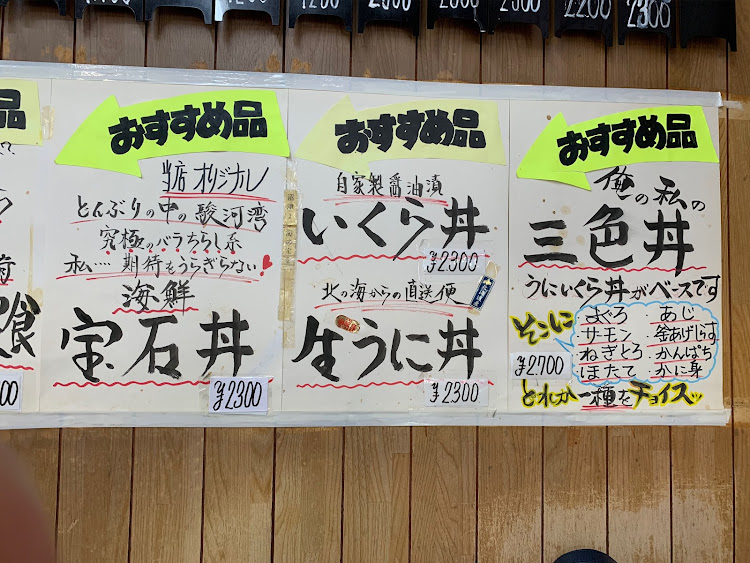 1200
2300
2300
2200
2300
品
食
00
おすすめ品
当店オリジナル
どんぶりの中の駿河湾
究極のバラちらし系
私‥‥期待もうらぎらない
海鮮
宝石丼
¥2300
おすすめ品
自家製醤油漬
いくら丼
¥2300
北の海からの直送便
生うに丼
¥2300
おすすめ品
俺の私の
三色丼
うにいくら丼がベースです
そこに
・まぐろ ・あじ
・サーモン ・釜あげしらす
・ねぎとろ ・かんぱち
・ほたて ・かに身
¥2,700
どれか一種をチョイスッ